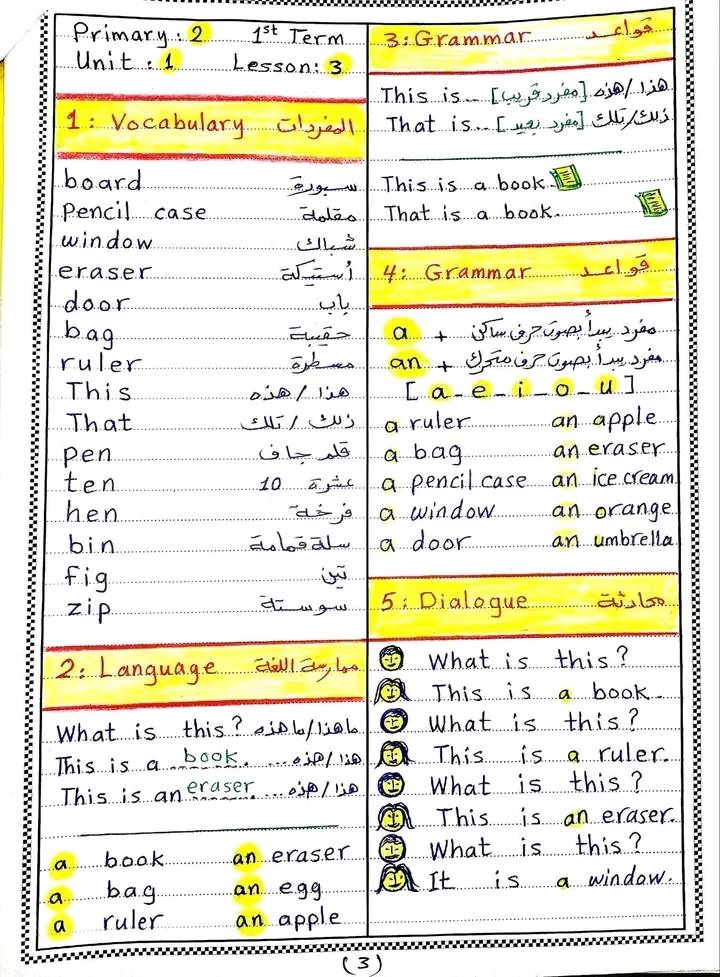 Primary: 2 1st Term
Unit: 1 Lesson: 3
1: Vocabulary المفردات
board سبورة
Pencil case مقلمة
window شباك
eraser أستيكة
door باب
bag حقيبة
ruler مسطرة
This هذا / هذه
That ذلك / تلك
pen قلم جاف
ten عشرة 10
hen فرخة
bin سلة قمامة
fig تين
zip سوستة
2: Language ممارسة اللغة
What is this? ما هذا/ما هذه
This is a book. ... هذا/هذه
This is an eraser. ... هذا/هذه
a book an eraser
a bag an egg
a ruler an apple
3: Grammar قواعد
This is... [مفرد قريب] هذا/هذه
That is... [مفرد بعيد] ذلك/تلك
This is a book.
That is a book.
4: Grammar قواعد
a + مفرد يبدأ بصوت حرف ساكن
an + مفرد يبدأ بصوت حرف متحرك
[a - e - i - o - u]
a ruler an apple
a bag an eraser
a pencil case an ice cream
a window an orange
a door an umbrella
5: Dialogue محادثة
What is this?
This is a book.
What is this?
This is a ruler.
What is this?
This is an eraser.
What is this?
It is a window.
(3)